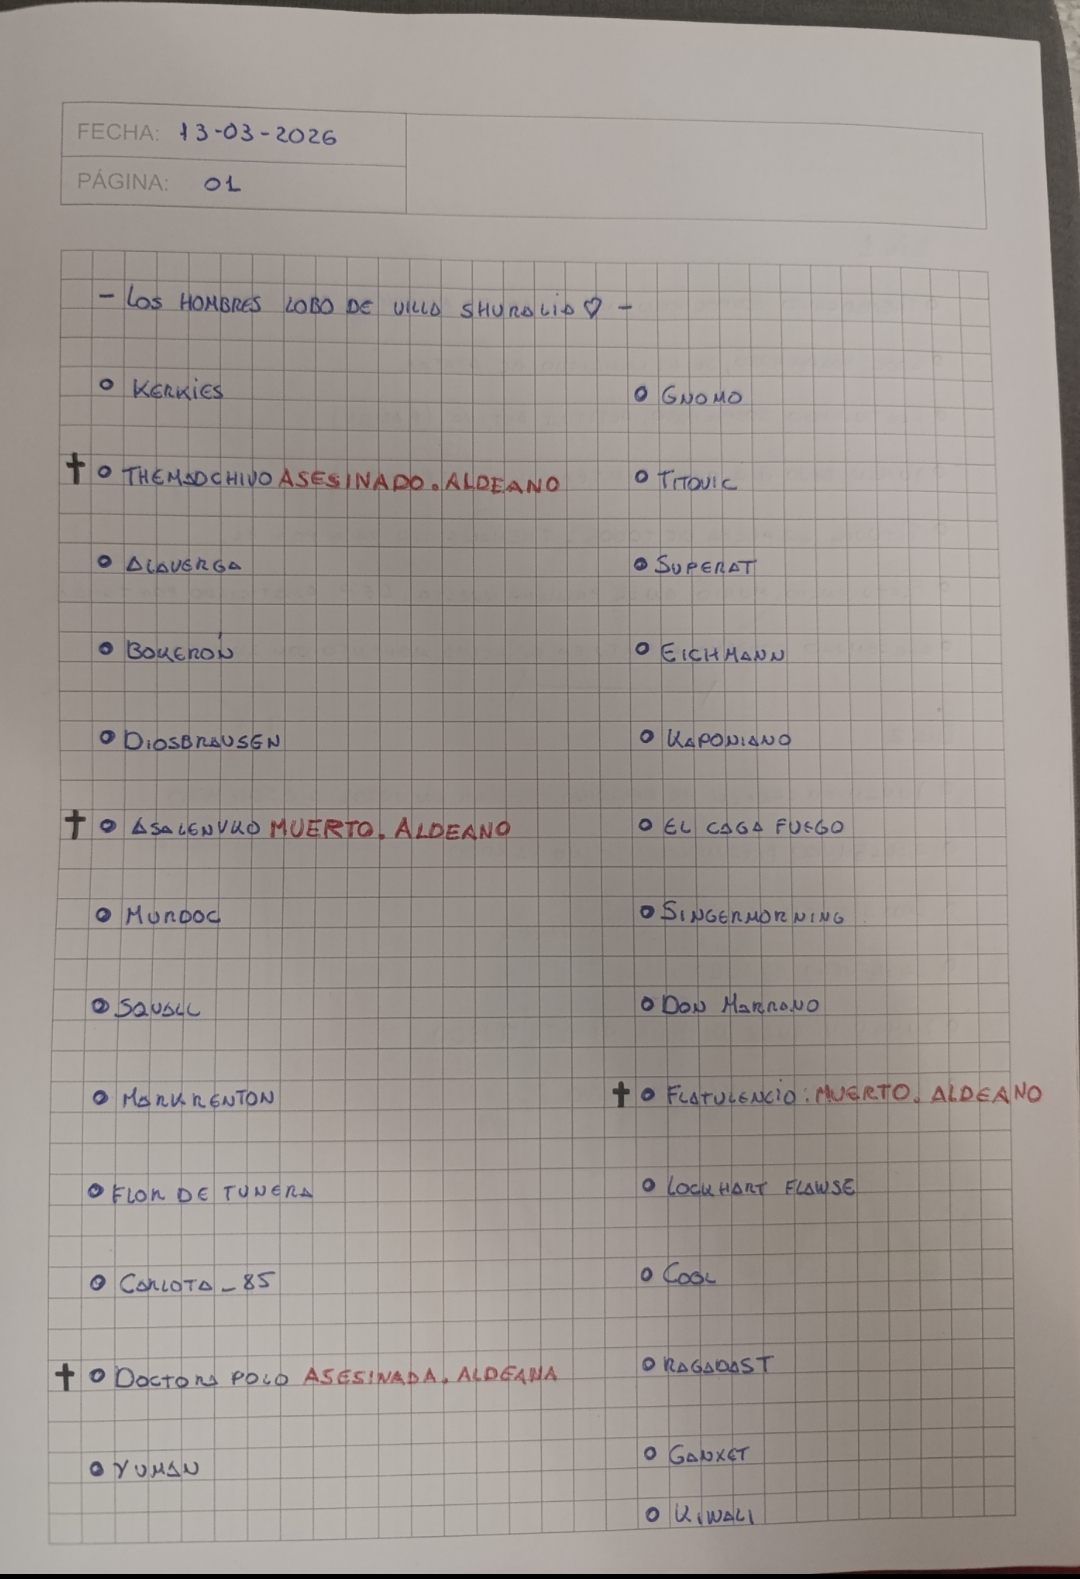 FECHA: 13-03-2026
PÁGINA: 01
- LOS HOMBRES LOBO DE VILLA SHURALIA ♡ -
o KERKIES
✝ o THEMADCHIVO ASESINADO. ALDEANO
o ALAVERGA
o BOKERÓN
o DIOSBRAUSEN
✝ o ASALENVKO MUERTO. ALDEANO
o MURDOC
o SQUALL
o MARKRENTON
o FLOR DE TUNERA
o CARLOTA_85
✝ o DOCTORA POLO ASESINADA. ALDEANA
o YUMAN
o GNOMO
o TITOVIC
o SUPERAT
o EICHMANN
o KAPONIANO
o EL CAGA FUEGO
o SINGERMORNING
o DON MARRANO
✝ o FLATULENCIO: MUERTO. ALDEANO
o LOCKHART FLAWSE
o COOL
o RAGADAST
o GANXET
o KIWALI